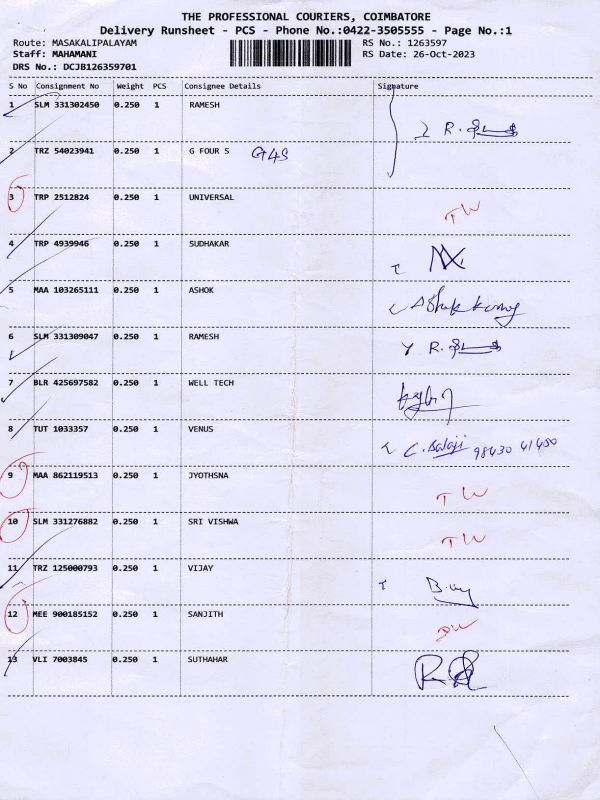 THE PROFESSIONAL COURIERS, COIMBATORE
Delivery Runsheet - PCS - Phone No.:0422-3505555 - Page No.:1
Route: MASAKALIPALAYAM RS No.: 1263597
Staff: MAHAMANI RS Date: 26-Oct-2023
DRS No.: DCJB126359701
S No Consignment No Weight PCS Consignee Details Signature
1 SLM 331302450 0.250 1 RAMESH
2 TRZ 54023941 0.250 1 G FOUR S G4S
3 TRP 2512824 0.250 1 UNIVERSAL TW
4 TRP 4939946 0.250 1 SUDHAKAR
5 MAA 103265111 0.250 1 ASHOK Ashok kumar
6 SLM 331309047 0.250 1 RAMESH
7 BLR 425697582 0.250 1 WELL TECH
8 TUT 1033357 0.250 1 VENUS C. Balaji 98430 41450
9 MAA 862119513 0.250 1 JYOTHSNA TW
10 SLM 331276882 0.250 1 SRI VISHWA TW
11 TRZ 125000793 0.250 1 VIJAY
12 MEE 900185152 0.250 1 SANJITH
13 VLI 7003845 0.250 1 SUTHAHAR